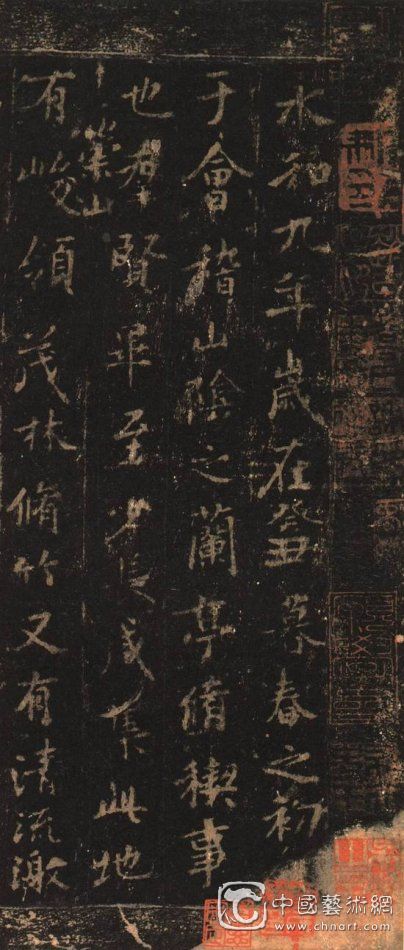 永和九年歲在癸丑暮春之初
于會稽山陰之蘭亭脩稧事
也羣賢畢至少長咸集此地
有崇山峻領茂林脩竹又有清流激
中國藝術網
www.chnart.com